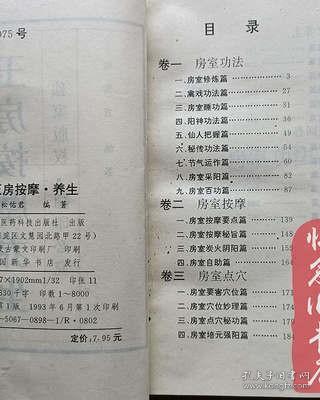 075号
房按摩·养生
松佑君 编著
医药科技出版社 出版
淀区文慧园北路甲22号)
古蒙文印刷厂 印刷
国新华书店 经销
7×1092mm1/32 印张11
330千字 印数1-8000
第1版 1993年6月第1次印刷
-5067-0898-1/R·0802
定价:7.95元
目录
卷一 房室功法
一、房室修炼篇 3
二、禽戏功法篇 27
三、房室睡功篇 31
四、阳神功法篇 37
五、仙人把握篇 39
六、秘传功法篇 41
七、节气运作篇 51
八、房室采阳篇 57
九、房室百功篇 63
卷二 房室按摩
一、房室按摩要点篇 137
二、房室按摩秘旨篇 141
三、房室炎火阴阳篇 160
四、房室自助篇 164
卷三 房室点穴
一、房室要害穴位篇 171
二、房室穴位妙理篇 174
三、房室点穴秘功篇 181
四、房室培元强阳篇 184